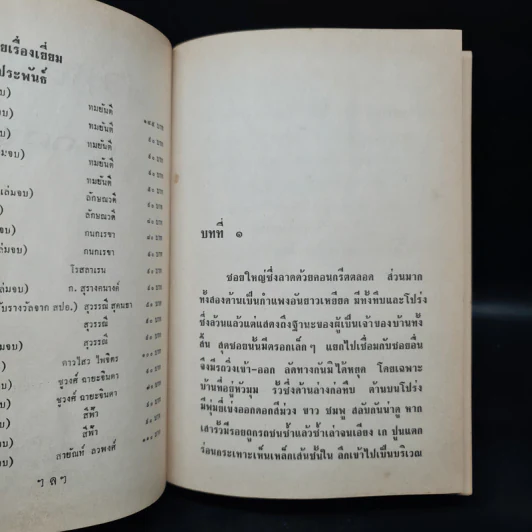 ยเรื่องเยี่ยม
ประพันธ์
บ) ทมยันตี ๑๙๕ บาท
บ) ทมยันตี ๕๐ บาท
บ) ทมยันตี ๕๐ บาท
มจบ) ทมยันตี ๕๐ บาท
บ) ทมยันตี ๕๐ บาท
เล่มจบ) ลักษณวดี ๕๐ บาท
บ) ลักษณวดี ๘๐ บาท
ล่มจบ) กนกเรขา ๔๐ บาท
บ) กนกเรขา ๘๐ บาท
โรสลาเรน ๕๐ บาท
ล่มจบ) ก. สุรางคนางค์ ๘๐ บาท
ับรางวัลจาก สปอ.) สุวรรณี สุคนธา ๘๐ บาท
บ) สุวรรณี ๕๐ บาท
มจบ) สุวรรณี
จบ) ดาวไสว ไพจิตร
มจบ) ชูวงศ์ ฉายะจินดา
บ) ชูวงศ์ ฉายะจินดา
บ) สีฟ้า
บ) สีฟ้า
ล่มจบ) สายัณห์ ลวพงศ์
ๆ ล ๆ
บทที่ ๑
ซอยใหญ่ซึ่งลาดด้วยคอนกรีตตลอด ส่วนมาก
ทั้งสองด้านเป็นกำแพงอันยาวเหยียด มีทั้งทึบและโปร่ง
ซึ่งล้วนแล้วแต่แสดงถึงฐานะของผู้เป็นเจ้าของบ้านทั้ง
สิ้น สุดซอยนั้นมีตรอกเล็กๆ แยกไปเชื่อมกับซอยอื่น
จึงมีรถวิ่งเข้า-ออก ลัดทางกันมิได้หยุด โดยเฉพาะ
บ้านที่อยู่หัวมุม รั้วซึ่งด้านล่างก่อทึบ ด้านบนโปร่ง
มีพุ่มเข็งออกดอกสีม่วง ขาว ชมพู สลับกันน่าดู หาก
เสารั้วมีรอยถูกรถชนซ้ำแล้วซ้ำเล่าจนเอียง เก ปูนแตก
ร่อนกระเทาะเห็นเหล็กเส้นชั้นใน ลึกเข้าไปเป็นบริเวณ